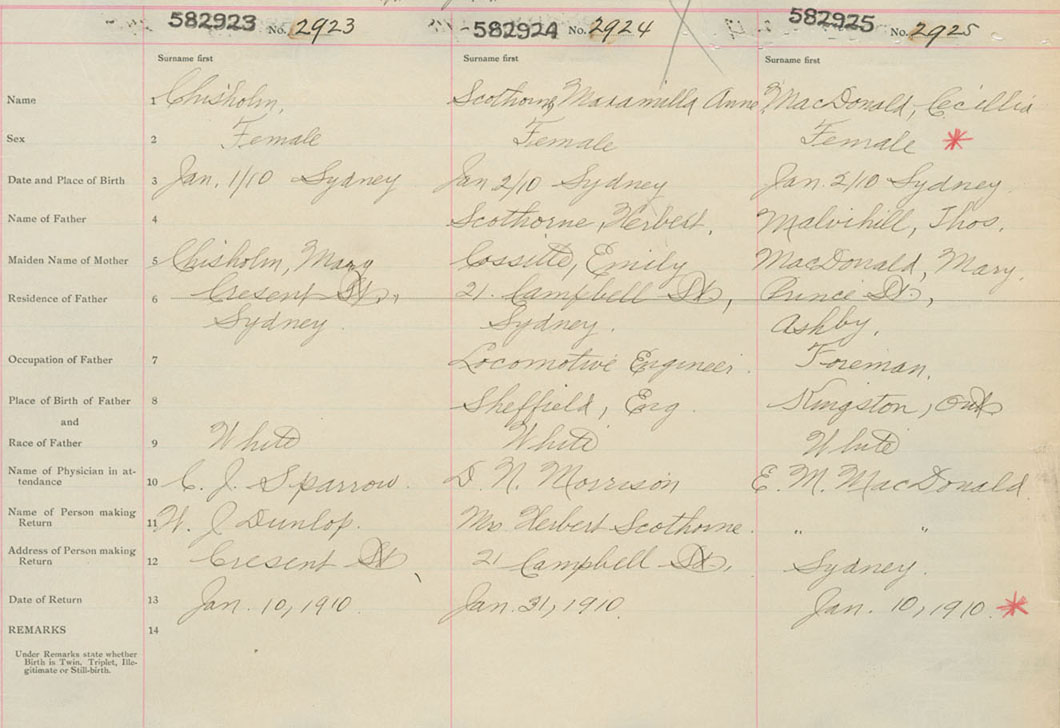 582923 No. 2923 582924 No. 2924 582925 No. 2925
Surname first Surname first Surname first
Name 1 Chisholm, Scothorne, Maramilla Anne MacDonald, Cecillia
Sex 2 Female Female Female *
Date and Place of Birth 3 Jan. 1/10 Sydney Jan 2/10 Sydney Jan. 2/10 Sydney.
Name of Father 4 Scothorne, Herbert. Malvihill, Thos.
Maiden Name of Mother 5 Chisholm, Mary Cossitte, Emily MacDonald, Mary.
Residence of Father 6 Cresent St., 21. Campbell St., Prince St.,
Sydney. Sydney. Ashby.
Occupation of Father 7 Locomotive Engineer. Foreman.
Place of Birth of Father 8 Sheffield, Eng. Kingston, Ont
and
Race of Father 9 White White White
Name of Physician in at-
tendance 10 C. J. Sparrow. D. N. Morrison E. M. MacDonald.
Name of Person making
Return 11 W. J Dunlop. Mrs. Herbert Scothorne. " "
Address of Person making
Return 12 Cresent St 21 Campbell St. Sydney.
Date of Return 13 Jan. 10, 1910. Jan. 31, 1910. Jan. 10, 1910. *
REMARKS 14
Under Remarks state whether
Birth is Twin, Triplet, Ille-
gitimate or Still-birth.